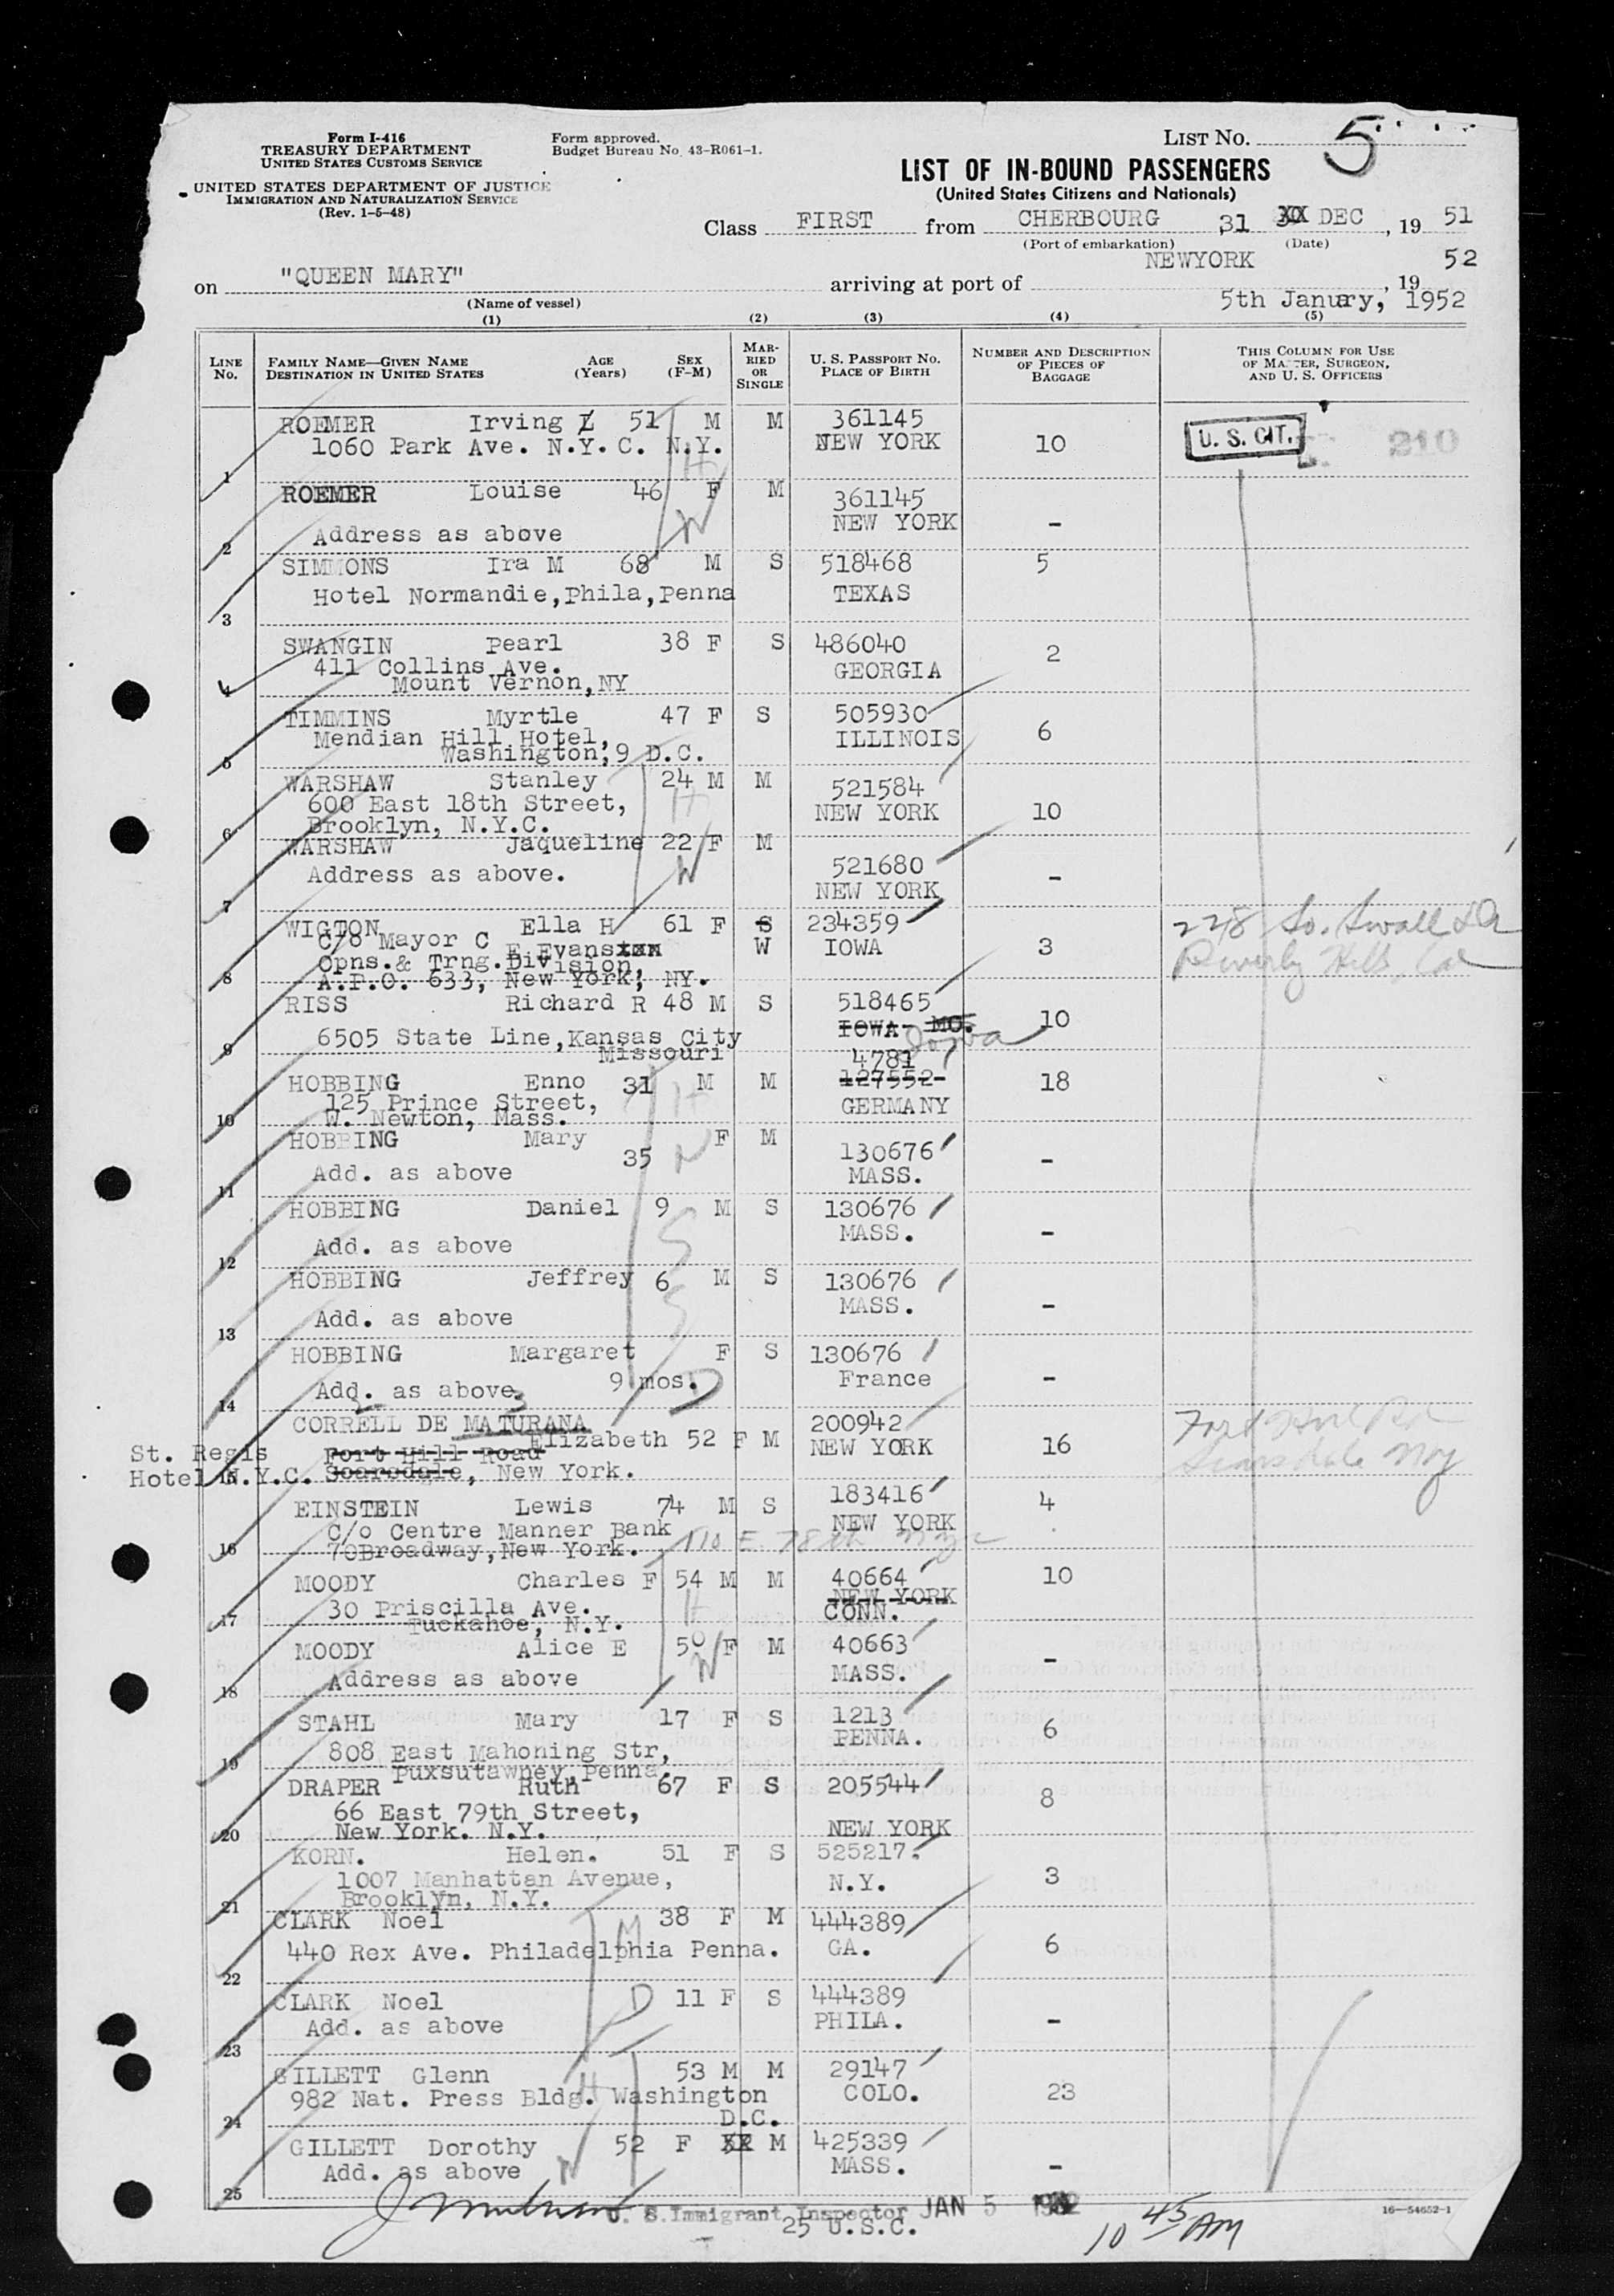 Form I-416
TREASURY DEPARTMENT
UNITED STATES CUSTOMS SERVICE
UNITED STATES DEPARTMENT OF JUSTICE
IMMIGRATION AND NATURALIZATION SERVICE
(Rev. 1-5-48)
Form approved.
Budget Bureau No. 43-R061-1.
LIST No. 5
LIST OF IN-BOUND PASSENGERS
(United States Citizens and Nationals)
Class FIRST from CHERBOURG 31 30 DEC, 19 51
(Port of embarkation) (Date)
on "QUEEN MARY" arriving at port of NEWYORK, 19 52
(Name of vessel) 5th Janury, 1952
(1) (2) (3) (4) (5)
LINE No. FAMILY NAME—GIVEN NAME DESTINATION IN UNITED STATES AGE (Years) SEX (F-M) MARRIED OR SINGLE U. S. PASSPORT No. PLACE OF BIRTH NUMBER AND DESCRIPTION OF PIECES OF BAGGAGE THIS COLUMN FOR USE OF MASTER, SURGEON, AND U. S. OFFICERS
ROEMER Irving 51 M M 361145 U. S. CIT. 210
1060 Park Ave. N.Y.C. N.Y. NEW YORK 10
1 H
ROEMER Louise 46 F M 361145
NEW YORK
2 Address as above W -
SIMMONS Ira M 68 M S 518468 5
Hotel Normandie,Phila,Penna TEXAS
3
SWANGIN Pearl 38 F S 486040
411 Collins Ave. GEORGIA 2
4 Mount Vernon,NY
TIMMINS Myrtle 47 F S 505930
Mendian Hill Hotel, ILLINOIS 6
5 Washington,9 D.C.
WARSHAW Stanley 24 M M 521584
600 East 18th Street, H NEW YORK 10
6 Brooklyn, N.Y.C.
WARSHAW Jaqueline 22 F M 521680
Address as above. W NEW YORK -
7
WIGTON Ella H 61 F S 234359 228 So. Swall Dr
C/o Mayor C E Evansxxx W IOWA 3 Beverly Hills, Cal
Opns.& Trng.Division,
8 A.P.O. 633, New York, NY.
RISS Richard R 48 M S 518465
IOWA MO. Iowa 10
6505 State Line,Kansas City
9 Missouri
HOBBING Enno 31 M M 4781
127552 18
125 Prince Street, H GERMANY
10 W. Newton, Mass.
HOBBING Mary 35 F M 130676
Add. as above W MASS. -
11
HOBBING Daniel 9 M S 130676
MASS.
12 Add. as above S -
HOBBING Jeffrey 6 M S 130676
MASS.
13 Add. as above S -
HOBBING Margaret F S 130676
14 Add. as above. 9 mos. D France -
2 3
CORRELL DE MATURANA 200942 Fort Hill Rd
Elizabeth 52 F M NEW YORK 16 Scarsdale NY
St. Regis Fort Hill Road
Hotel N.Y.C. 15 Scarsdale, New York.
EINSTEIN Lewis 74 M S 183416 4
C/o Centre Manner Bank NEW YORK
16 70Broadway,New York. E 78th NYC
MOODY Charles F 54 M M 40664 10
30 Priscilla Ave. H NEW YORK
17 Tuckahoe, N.Y. CONN.
MOODY Alice E 50 F M 40663
18 Address as above W MASS. -
STAHL Mary 17 F S 1213
808 East Mahoning Str, PENNA. 6
19 Puxsutawney,Penna.
DRAPER Ruth 67 F S 205544
66 East 79th Street, 8
20 New York. N.Y. NEW YORK
KORN. Helen. 51 F S 525217.
1007 Manhattan Avenue, N.Y. 3
21 Brooklyn, N.Y.
CLARK Noel 38 F M 444389
440 Rex Ave. Philadelphia Penna. M GA. 6
22
CLARK Noel D 11 F S 444389
Add. as above PHILA. -
23
GILLETT Glenn 53 M M 29147
982 Nat. Press Bldg. Washington H COLO. 23
24 D.C.
GILLETT Dorothy 52 F XX M 425339
Add. as above W MASS. -
25
U. S. Immigrant Inspector JAN 5 1952
25 U.S.C.
10 45 AM
16—54652-1